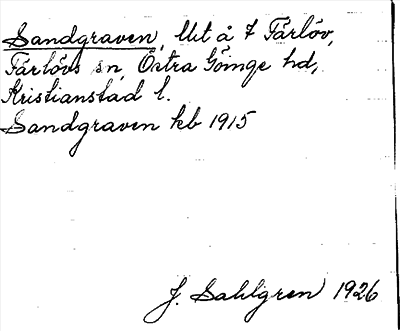 Sandgraven, llt å 7 Färlöv,
Färlövs sn, Östra Göinge hd,
Kristianstad l.
Sandgraven kb 1915
J. Sahlgren 1926